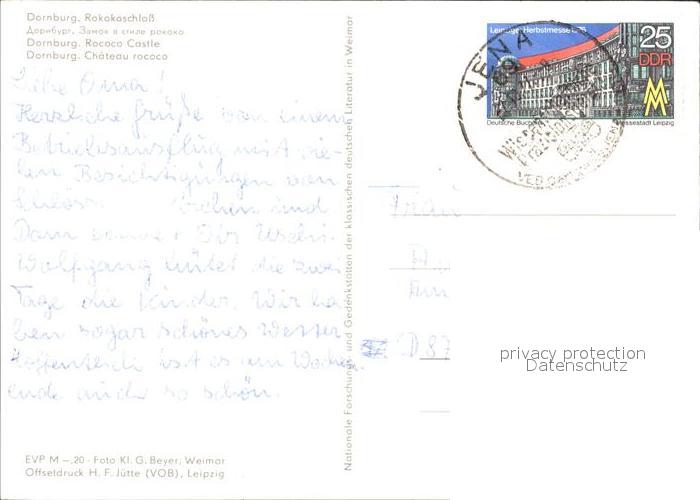 Dornburg, Rokokoschloß
Дорнбург, Замок в стиле рококо
Dornburg, Rococo Castle
Dornburg, Château rococo
Liebe Oma!
Herzliche Grüße von einem
Betriebsausflug mit vie-
len Besichtigungen von
und
Dom Dir Uschi.
Wolfgang hütet die zwei
Tage die Kinder. Wir ha-
ben sogar schönes Wetter
hoffentlich ist es am Wochen-
ende auch so schön.
EVP M –,20 · Foto Kl. G. Beyer, Weimar
Offsetdruck H. F. Jütte (VOB), Leipzig
Nationale Forschungs- und Gedenkstätten der klassischen deutschen Literatur in Weimar
Leipziger Herbstmesse 1976
25
DDR
MM
Deutsche Büch Messestadt Leipzig
JENA
69
VEB
Frau
D 87
privacy protection
Datenschutz